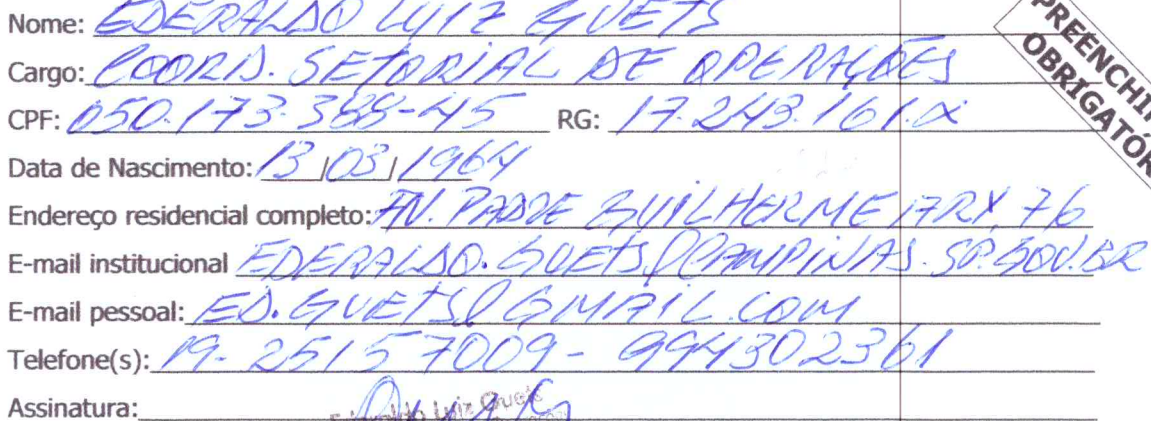 Nome: EDERALDO LUIZ GUETS
Cargo: COORD. SETORIAL DE OPERAÇÕES
CPF: 050.173.388-45 RG: 17.243.161.X
Data de Nascimento: 13/03/1964
Endereço residencial completo: AV. PADRE GUILHERME ARX, 76
E-mail institucional EDERALDO.GUETS@CAMPINAS.SP.GOV.BR
E-mail pessoal: ED.GUETS@GMAIL.COM
Telefone(s): 19-25157009- 994302361
Assinatura:
Luiz Guets
OBRIGATÓR